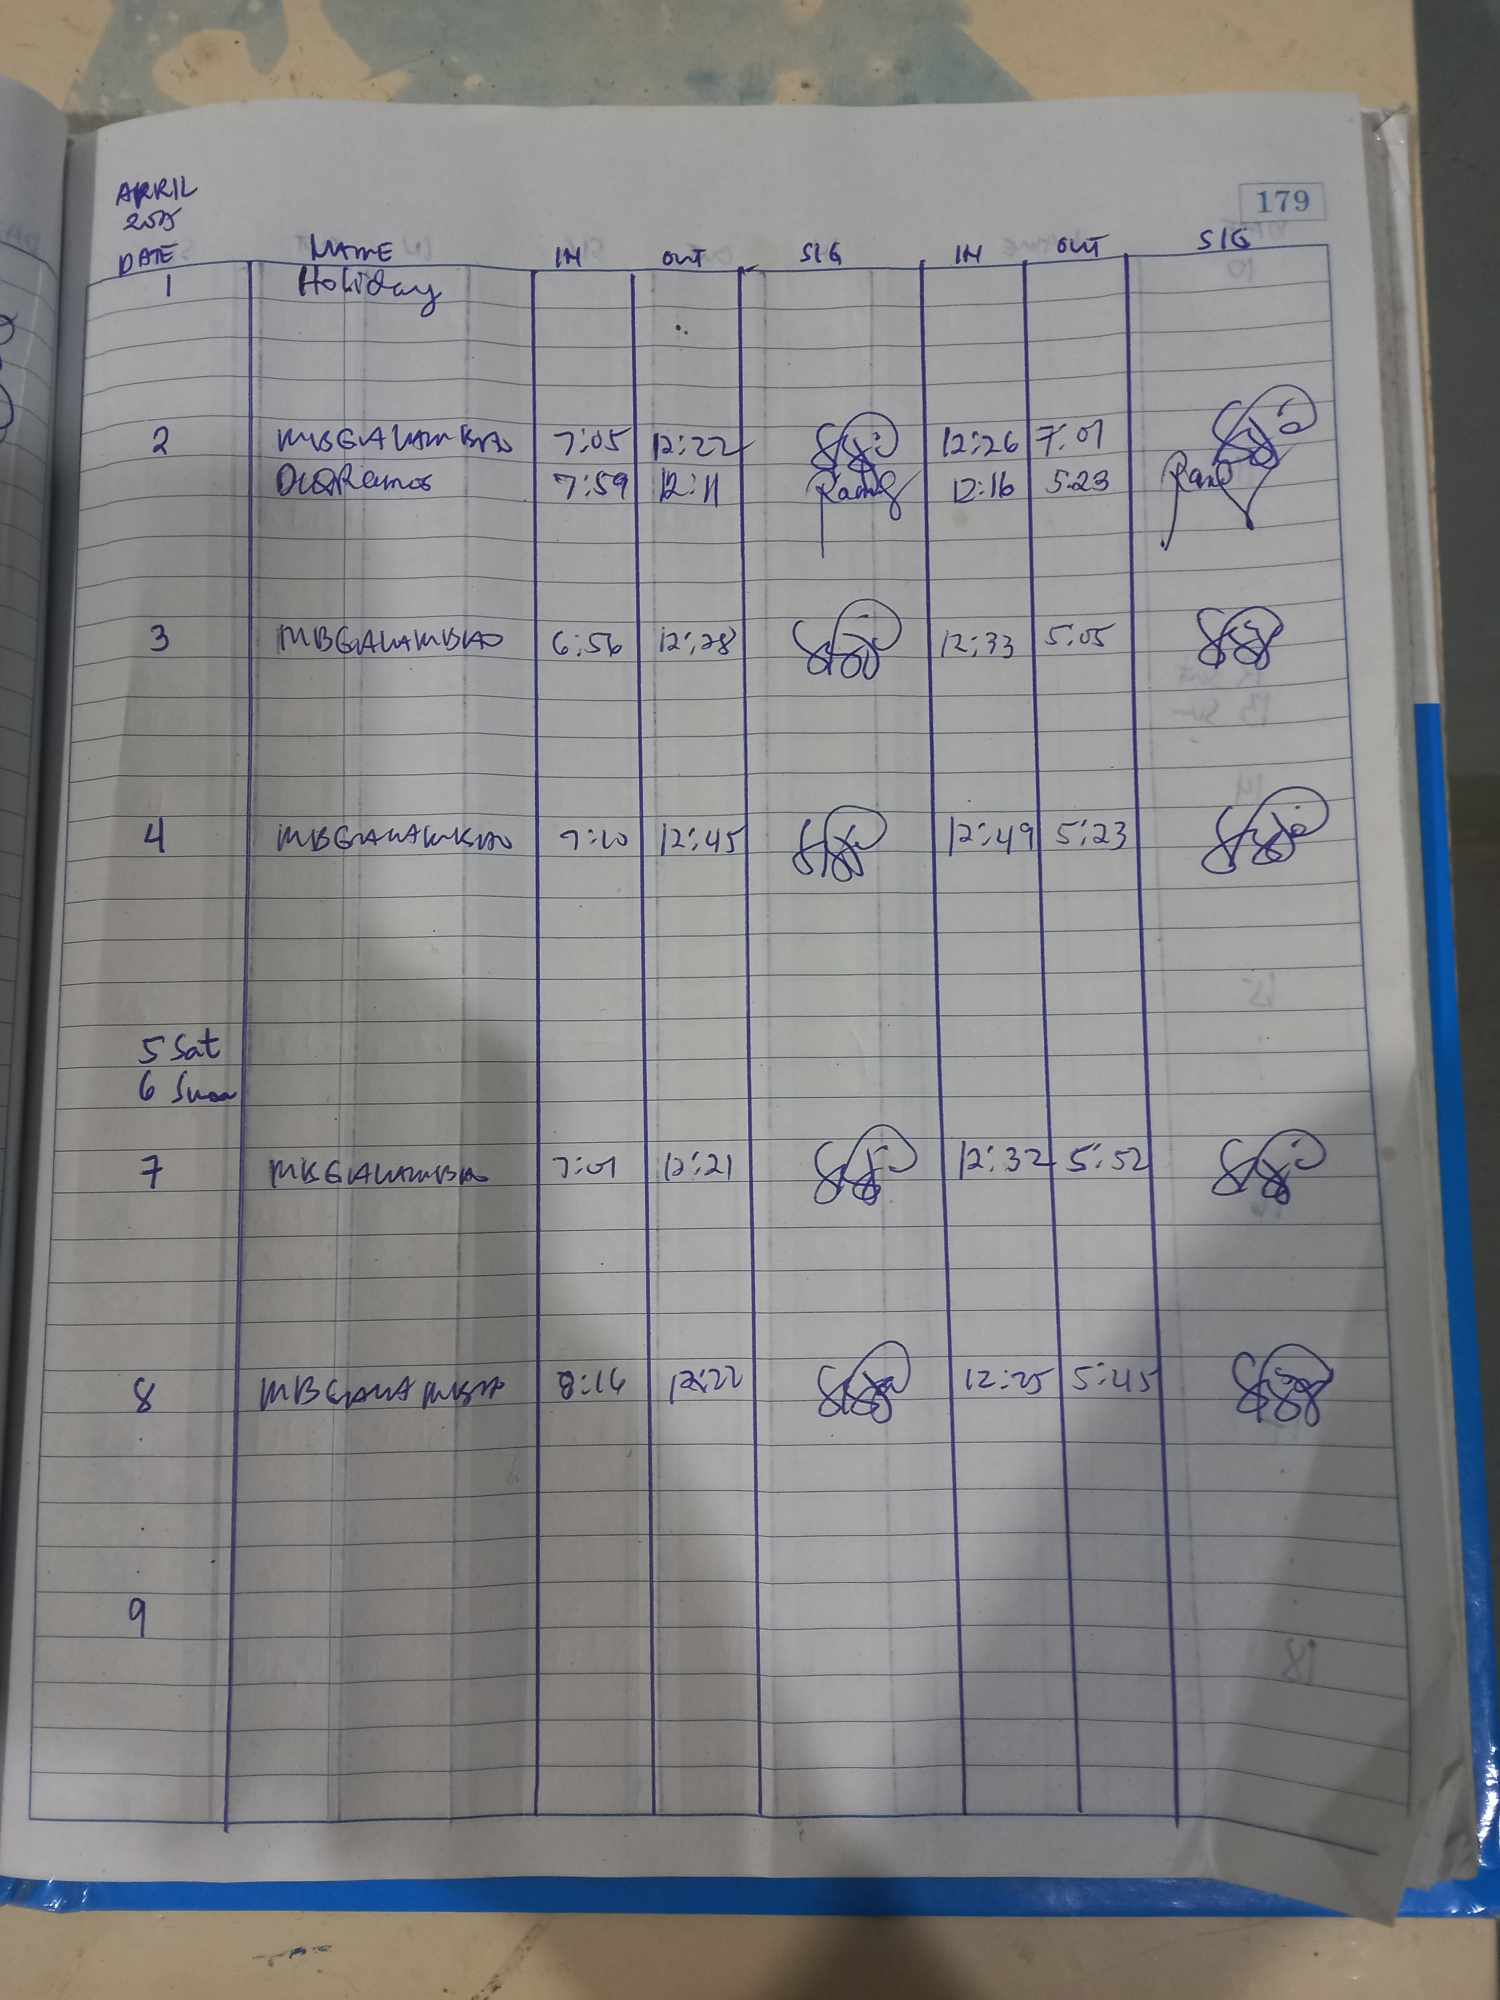 APRIL
2025
179
DATE NAME IN OUT SIG IN OUT SIG
1 Holiday
2 MBGALAMBAO 7:05 12:22 12:26 7:01
Ramos 7:59 12:11 12:16 5:23
3 MBGALAMBAO 6:56 12:28 12:33 5:05
4 MBGALAMBAO 7:10 12:45 12:49 5:23
5 Sat
6 Sun
7 MBGALAMBAO 7:01 12:21 12:32 5:52
8 MBGALAMBAO 8:16 12:22 12:25 5:45
9